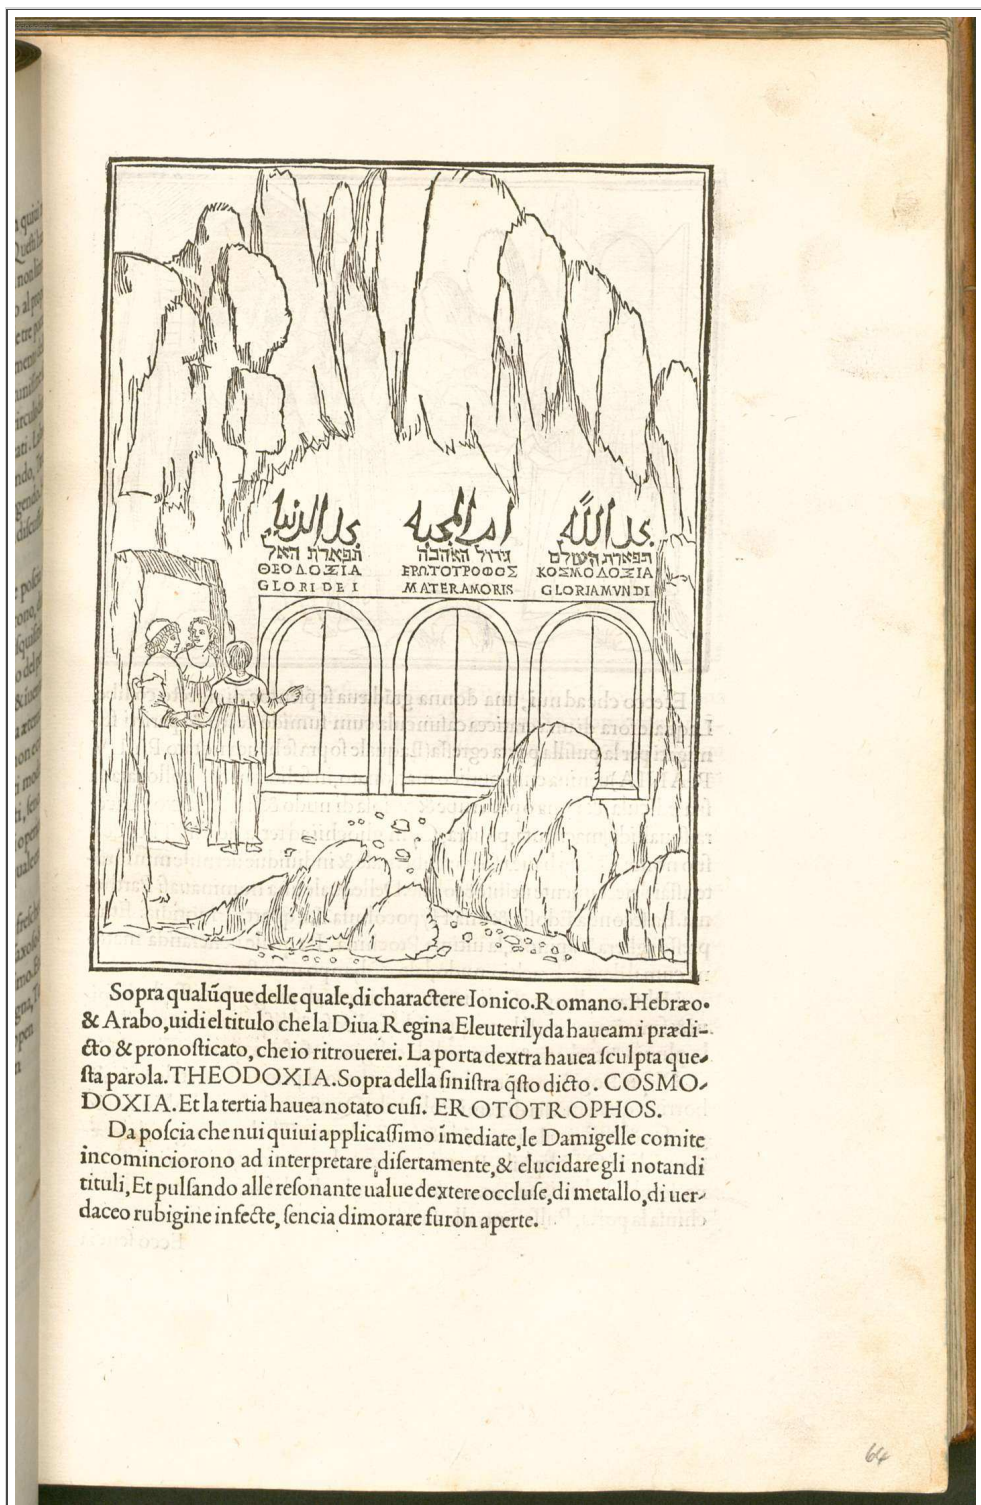 مجد الدنيا ام المحبه مجد الله
תפארת האל גידול האהבה תפארת העולם
ΘΕΟΔΟΞΙΑ ΕΡΩΤΟΤΡΟΦΟΣ ΚΟΣΜΟΔΟΞΙΑ
GLORI DEI MATERAMORIS GLORIAMVNDI
Sopra qualũque delle quale, di charactere Ionico. Romano. Hebræo.
& Arabo, uidi el titulo che la Diua Regina Eleuterilyda haueami prædi-
cto & pronoſticato, che io ritrouerei. La porta dextra hauea ſculpta que-
ſta parola. THEODOXIA. Sopra della ſiniſtra q̃ſto dicto. COSMO-
DOXIA. Et la tertia hauea notato cuſi. EROTOTROPHOS.
Da poſcia che nui quiui applicaſſimo ĩmediate, le Damigelle comite
incominciorono ad interpretare diſertamente, & elucidare gli notandi
tituli, Et pulſando alle reſonante ualue dextere occluſe, di metallo, di uer-
daceo rubigine infecte, ſencia dimorare furon aperte.
64